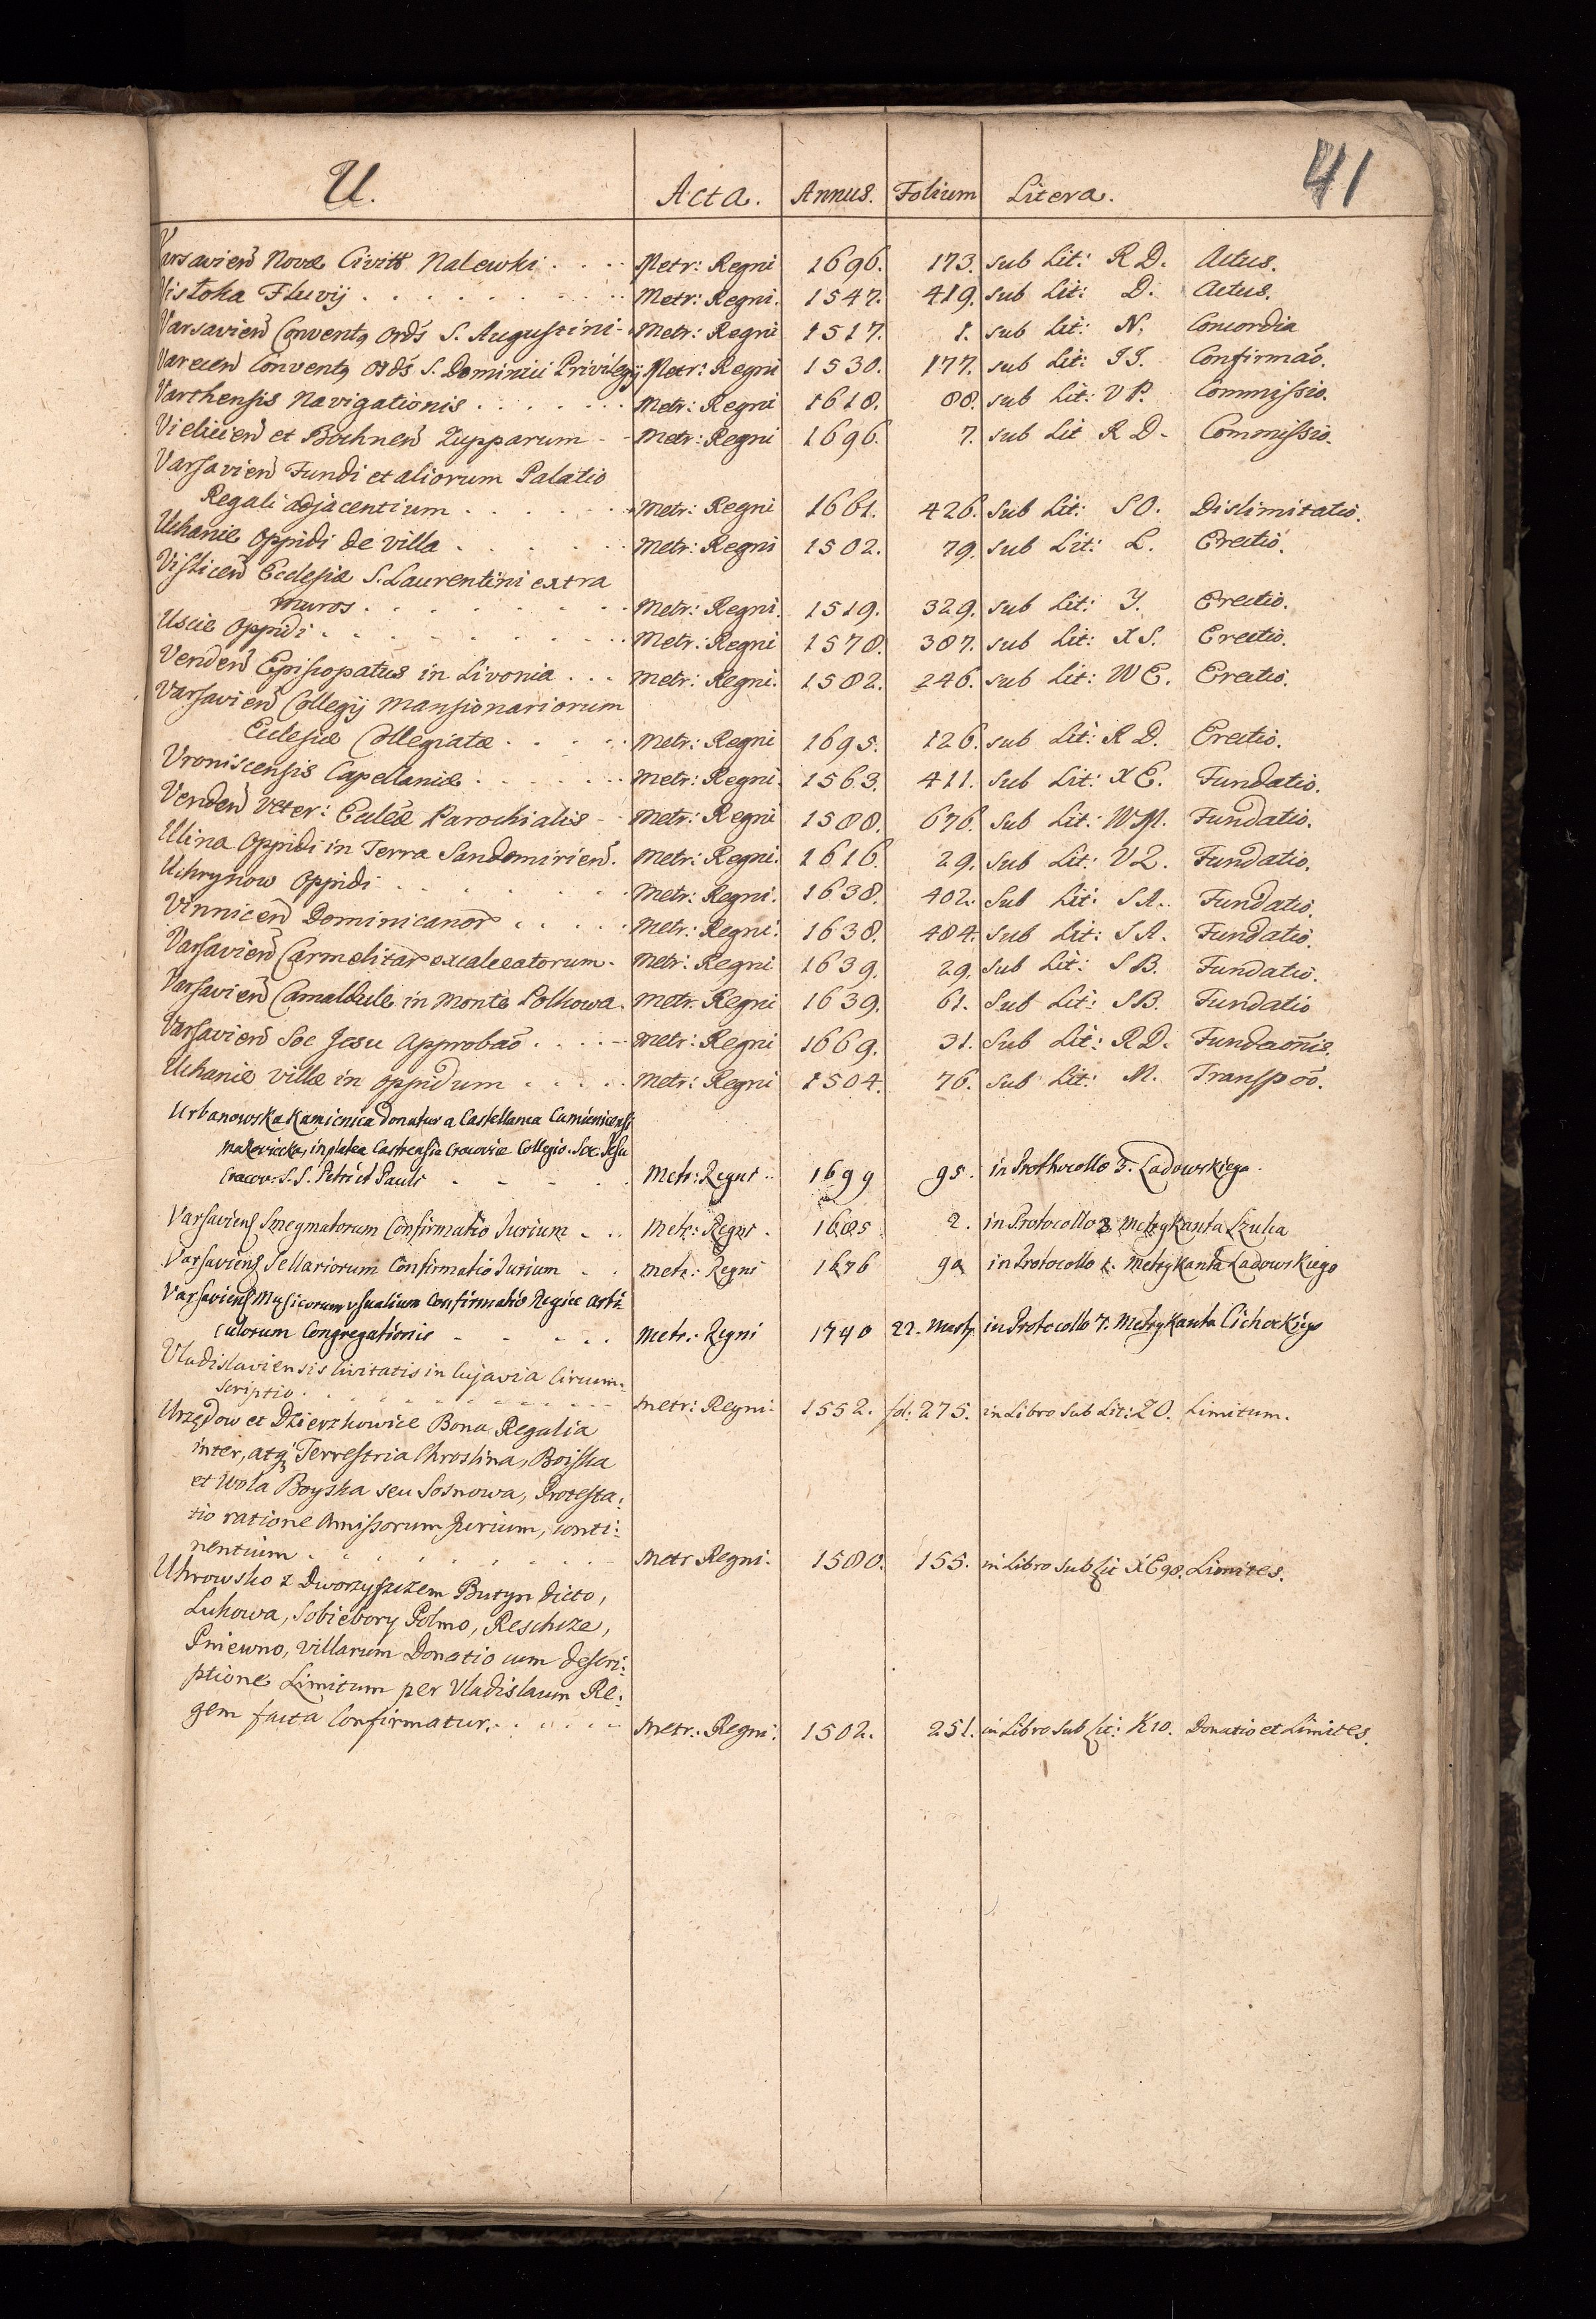 41
U. Acta. Annus. Folium Litera.
Varsavien̄ Novæ Civitt Nalewki . . . . Metr: Regni 1696. 173. sub Lit: R D. Actus.
Vistoka Fluvij . . . . . . . . . . Metr: Regni. 1547. 419. sub Lit: D. Actus.
Varsavien̄ Convent9 Ord̄s S. Augustini - Metr: Regni 1517. 1. sub Lit: N. Concordia
Varecen̄ Convent9 Ord̄s S. Dominici Privilegij Metr: Regni 1530. 177. sub Lit: II. Confirmaō.
Varthensis Navigationis . . . . . . . Metr: Regni 1618. 88. sub Lit: V P. Commissio.
Vielicien̄ et Bochnen̄ Zupparum - - Metr: Regni 1696. 7. sub Lit R D. Commissio.
Varsavien̄ Fundi et aliorum Palatio
Regali adjacentium . . . . . . . Metr: Regni 1661. 426. sub Lit: S O. Dislimitatio.
Uchanie Oppidi de villa . . . . . . Metr: Regni 1502. 79. sub Lit: L. Erectio.
Visliceñ Ecclesiæ S. Laurentini extra
muros . . . . . . . . . Metr: Regni. 1519. 329. sub Lit: Y. Erectio.
Uscie Oppidi . . . . . . . . . . Metr: Regni 1578. 387. sub Lit: X S. Erectio.
Venden̄ Episcopatus in Livonia . . . Metr: Regni. 1582. 246. sub Lit: W E. Erectio.
Varsavien̄ Collegij Mansionariorum
Eclesiæ Collegiatæ . . . . . Metr: Regni 1695. 126. sub Lit: R D. Erectio.
Vroniscensis Capellaniæ . . . . . . . Metr: Regni. 1563. 411. sub Lit: X E. Fundatio.
Venden̄ Veter: Ecclēæ Parochialis - - Metr: Regni 1588. 676. sub Lit: W M. Fundatio.
Ulina Oppidi in Terra Sandomirien̄. Metr: Regni. 1616. 29. sub Lit: V Z. Fundatio.
Uchrynow Oppidi . . . . . . . . Metr: Regni. 1638. 402. Sub Lit: S A. Fundatio.
Vinnicen̄ Dominicanor̄ . . . . . Metr: Regni. 1638. 484. Sub Lit: S A. Fundatio.
Varsavien̄ Carmelitar̄ excalceatorum. Metr: Regni 1639. 29. Sub Lit: S B. Fundatio.
Varsavien̄ Camaldulē in Monte Polkowa. Metr. Regni 1639. 61. Sub Lit: S B. Fundatio
Varsavien̄ Soc Jesu Approbaō . . . . - Metr: Regni 1669. 31. Sub Lit: R D. Fundaōnis.
Uchanie villæ in oppidum . . . . . Metr: Regni 1504. 76. sub Lit: M. Transpoō.
Urbanowska Kamienica Donatur a Castellanea Camienicensi
Makoviecka, in platea Castrensia Cracoviæ Collegio. Soc. Jesu
Cracov: S. S. Petri et Pauli - - - . . Metr: Regni .. 1699 95. in Prothocollo 5. Ladowskiego.
Varsaviens Smegmatorum Confirmatio Jurium . . . Metr: Regni . 1685 2. in Protocollo 3 Metrykanta Szulca
Varsaviens Sellariorum Confirmatio Jurium . . Metr: Regni 1676 90 in Protocollo 1. Metrykanta Ladowskiego
Varsaviens Musicorum usualium Confirmatio Regiæ Arti-
culorum Congregationis - - - . . Metr: Regni 1740 22. Martij in Protocollo 7. Metrykanta Cichockiego
Vladislaviensis Civitatis in Cujavia Circum:
scriptio . . . . . . . . . . . Metr: Regni. 1552. fol: 275. in Libro Sub Lit: Z O. Limitum.
Urzędow et Dzierzkowice Bona Regalia
inter, atq3 Terrestria Chroslina, Boiska
et Wola Boyska seu Sosnowa, Protesta:
tio ratione Amissorum Jurium, conti:
nentium . . . . . . . . . - Metr Regni. 1580. 155. in Libro Sub Lit X E 98. Limites.
Uhrowsko z Dworzyszczem Butyn dicto,
Lukowa, Sobiebory Polmo, Reschcze,
Pniewno, villarum Donatio cum descri:
ptione Limitum per Vladislaum Re:
gem facta Confirmatur. . . . . . . Metr: Regni. 1502. 251. in Libro Sub Lit: K 10. Donatio et Limites.